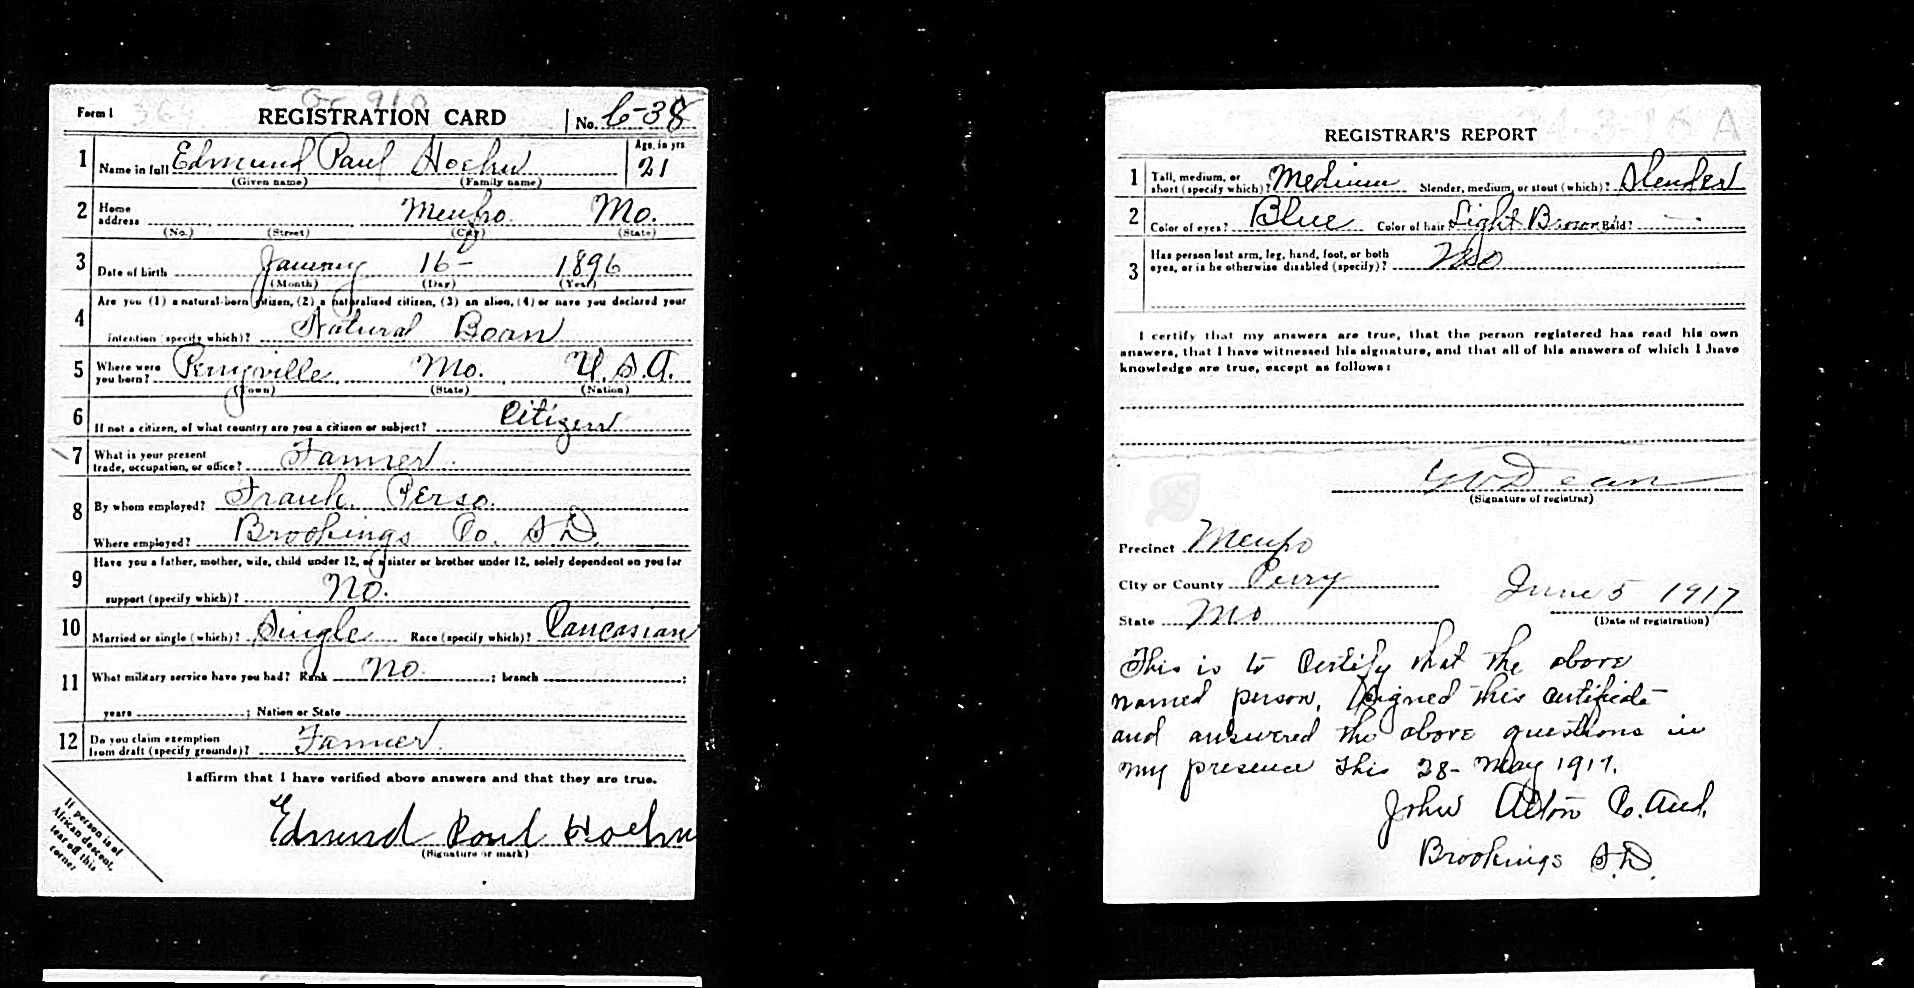 Form 1 REGISTRATION CARD No. 6-38
1 Name in full Edmund Paul Hoehn Age, in yrs. 21
(Given name) (Family name)
2 Home address Menfro Mo.
(No.) (Street) (City) (State)
3 Date of birth January 16- 1896
(Month) (Day) (Year)
4 Are you (1) a natural-born citizen, (2) a naturalized citizen, (3) an alien, (4) or have you declared your
intention (specify which)? Natural Born
5 Where were you born? Perryville Mo. U.S.A.
(Town) (State) (Nation)
6 If not a citizen, of what country are you a citizen or subject? Citizen
7 What is your present trade, occupation, or office? Farmer
8 By whom employed? Frank Perso.
Where employed? Brookings Co. S.D.
9 Have you a father, mother, wife, child under 12, or a sister or brother under 12, solely dependent on you for
support (specify which)? No.
10 Married or single (which)? Single Race (specify which)? Caucasian
11 What military service have you had? Rank No. ; branch ;
years ; Nation or State
12 Do you claim exemption from draft (specify grounds)? Farmer
I affirm that I have verified above answers and that they are true.
Edmund Paul Hoehn
(Signature or mark)
If person is of
African descent,
tear off this
corner
REGISTRAR'S REPORT
1 Tall, medium, or short (specify which)? Medium Slender, medium, or stout (which)? Slender
2 Color of eyes? Blue Color of hair? Light Brown Bald?
3 Has person lost arm, leg, hand, foot, or both
eyes, or is he otherwise disabled (specify)? No
I certify that my answers are true, that the person registered has read his own
answers, that I have witnessed his signature, and that all of his answers of which I have
knowledge are true, except as follows:
Dean
(Signature of registrar)
Precinct Menfro
City or County Perry
State Mo
June 5 1917
(Date of registration)
This is to Certify that the above
named person, signed this certificate
and answered the above questions in
my presence this 28- May 1917.
John Alton Co. Aud.
Brookings S.D.